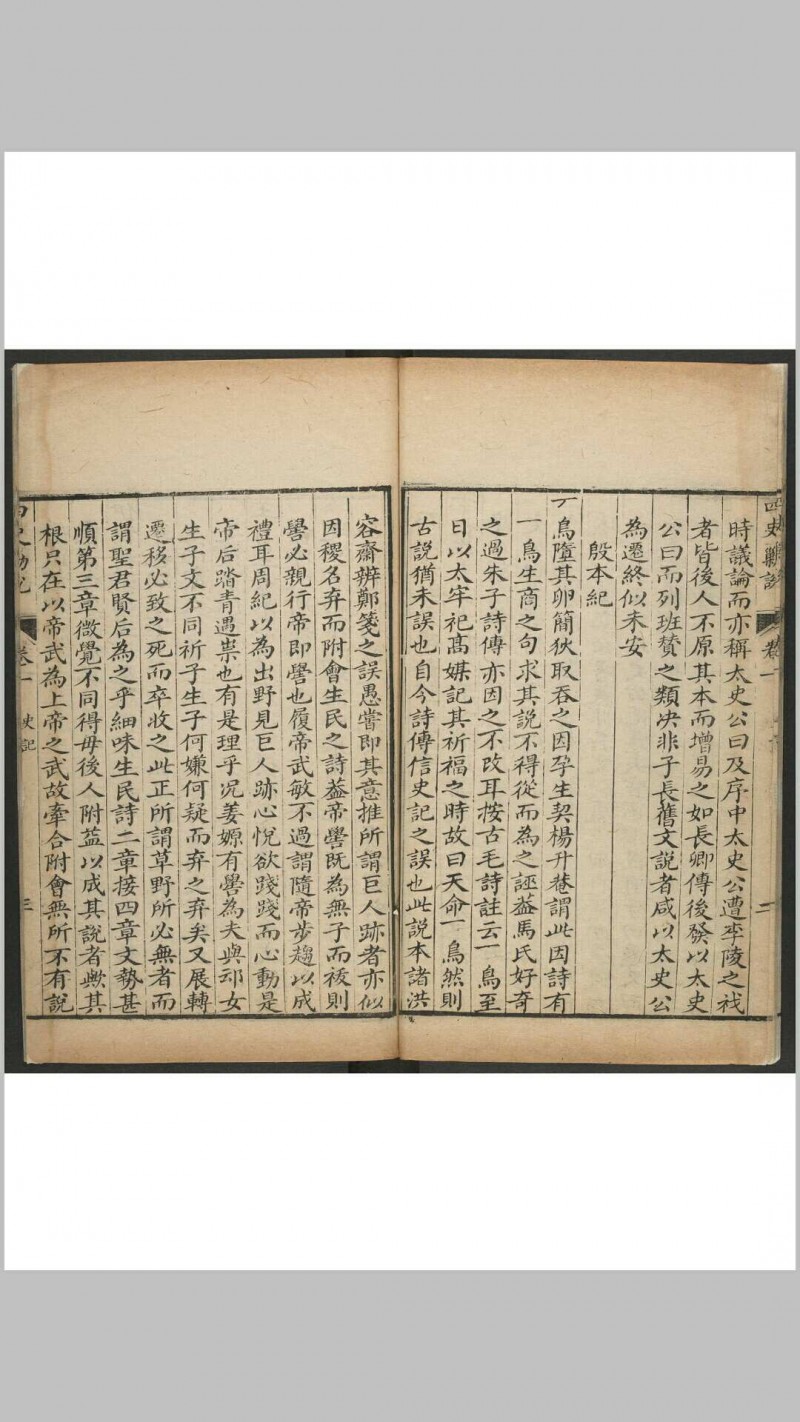 四史勦説
卷一
二
時議論而亦稱太史公曰及序中太史公遭李陵之禍
者皆後人不原其本而增易之如長卿傳後發以太史
公曰而列班贊之類决非子長舊文説者咸以太史公
為遷終似未安
殷本紀
鳥墮其卵簡狄取吞之因孕生契楊升菴謂此因詩有
鳥生商之句求其説不得從而為之誣葢馬氏好奇
之過朱子詩傳亦因之不改耳按古毛詩註云鳥至
日以太牢祀髙媒記其祈福之時故曰天命鳥然則
古説猶未誤也自今詩傳信史記之誤也此説本諸洪
容齋辨鄭箋之誤愚嘗即其意推所謂巨人跡者亦似
因稷名弃而附會生民之詩葢帝嚳既為無子而祓則
嚳必親行帝即嚳也履帝武敏不過謂隨帝步趨以成
禮耳周紀以為出野見巨人跡心悦欲踐踐而心動是
帝后踏青遇祟也有是理乎况姜嫄有嚳為夫與邧女
生子文不同祈子生子何嫌何疑而弃之弃矣又展轉
遷移必致之死而卒收之此正所謂草野所必無者而
謂聖君賢后為之乎細味生民詩二章接四章文勢甚
順第三章微覺不同得毋後人附益以成其説者歟其
根只在以帝武為上帝之武故牽合附會無所不有説
卷一
史記
三